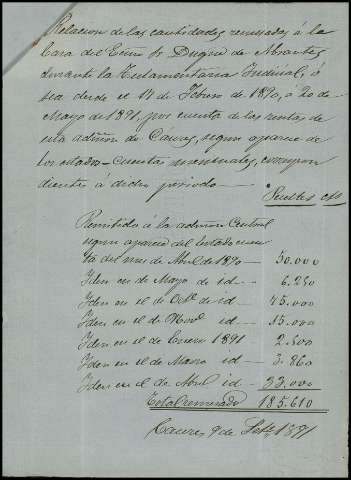 Relacion de las cantidades remesadas á la
Casa del Excmo Sr Duque de Abrantes
durante la Testamentaria Judicial, ó
sea desde el 14 de Febrero de 1890, á 20 de
Mayo de 1891, por cuenta de las rentas de
esta admon de Cáceres, segun aparece de
los estados-cuentas mensuales, correspon
dientes á dicho periodo
Remitido á la admon Central
segun aparece del Estado cuen
ta del mes de Abril de 1890 — 50.000
Iden en de Mayo de id — 6.250
Iden en el de Octe de id — 75.000
Iden en el de Nove id — 15.000
Iden en el de Enero 1891 2.500
Iden en el de Marzo id — 3.860
Iden en el de Abril id — 33.000
Total remesado 185.610
Caceres 9 de Sete 1891